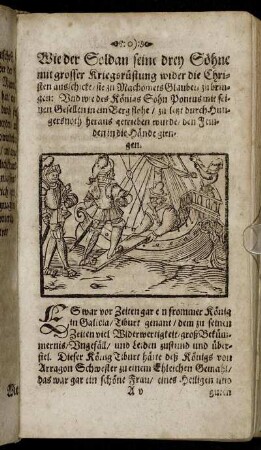 ):(0):(
Wie der Soldan seine drey Söhne
mit grosser Kriegsrüstung wider die Chri-
sten ausschickt/ sie zu Machomets Glauben zu brin-
gen: Und wie des Königs Sohn Pontus mit sei-
nen Gesellen in ein Berg flohe / zu letzt durch Hun-
gersnoth heraus getrieben wurde/ den Fein-
den in die Hände gien-
gen.
ES war vor Zeiten gar ein frommer König
in Galicia/Tiburt genant/ dem zu seinen
Zeiten viel Widerwertigkeit/ groß Beküm-
mernis/ Ungefäll/ und Leiden zustund und über-
fiel. Dieser König Tiburt hatte deß Königs von
Arragon Schwester zu einem Ehlichen Gemahl/
das war gar ein schöne Frau/ eines Heiligen und
A v
guten